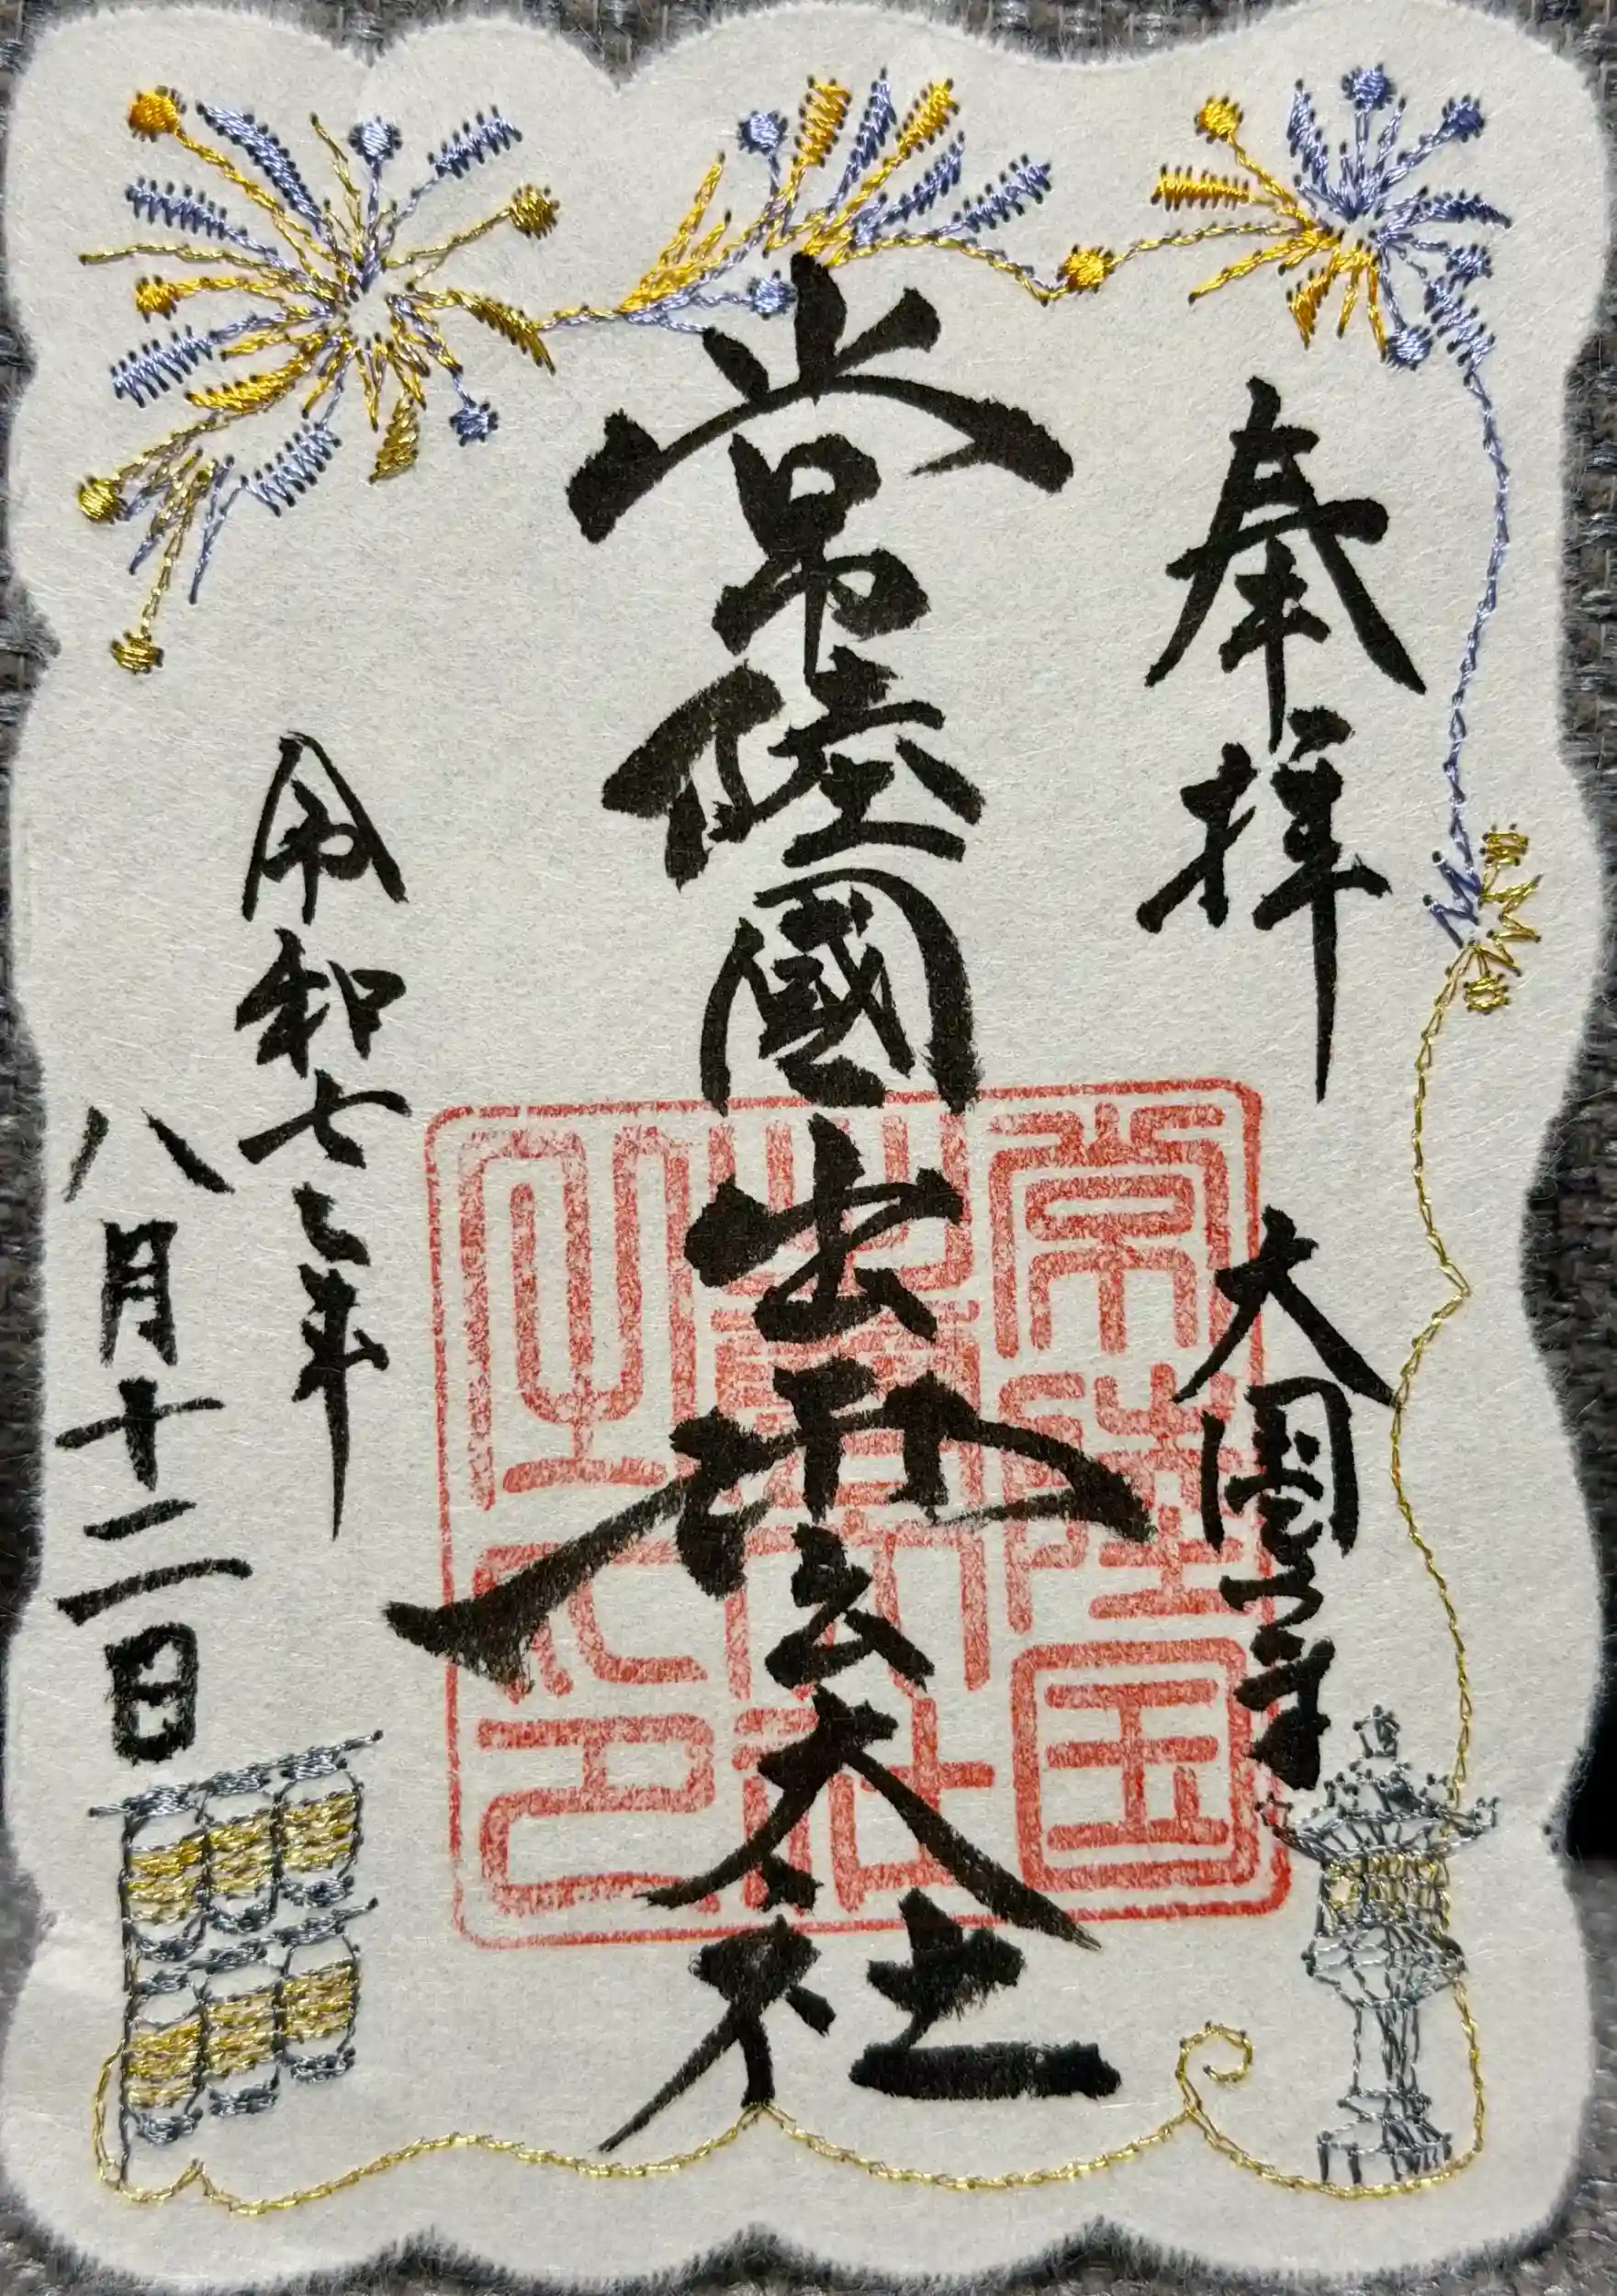 奉拝
常陸國出雲大社
令和七年
八月十二日
常陸国
出雲大社